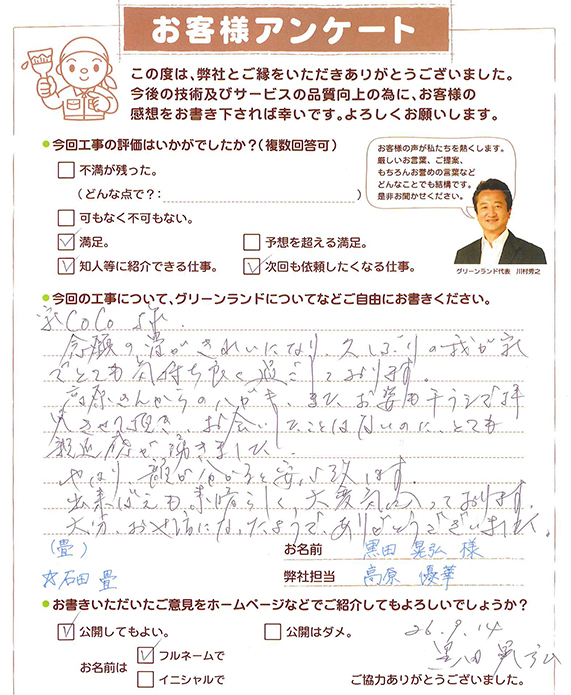 お客様アンケート
この度は、弊社とご縁をいただきありがとうございました。
今後の技術及びサービスの品質向上の為に、お客様の
感想をお書き下されば幸いです。よろしくお願いします。
●今回工事の評価はいかがでしたか？（複数回答可）
不満が残った。
（どんな点で？： ）
可もなく不可もない。
満足。 予想を超える満足。
知人等に紹介できる仕事。 次回も依頼したくなる仕事。
お客様の声が私たちを熱くします。
厳しいお言葉、ご提案、
もちろんお誉めの言葉など
どんなことでも結構です。
是非お聞かせください。
グリーンランド代表 川村秀之
●今回の工事について、グリーンランドについてなどご自由にお書きください。
家CoCo さま.
念願の畳がきれいになり、久しぶりの我が家
でとても気持ち良く過ごしております。
高原さんからのハガキ、また、お姿もチラシで拝
見させて頂き、お会いしたことはないのに、とても
親近感が湧きました。
やはり、顔が分かると安心致します。
出来ばえも素晴らしく、大変気に入っております。
大分、お世話になったようで、ありがとうございました。
（畳）
☆石田畳
お名前 黒田 晃弘 様
弊社担当 高原 優華
●お書きいただいたご意見をホームページなどでご紹介してもよろしいでしょうか？
公開してもよい。 公開はダメ。
お名前は フルネームで
イニシャルで
26.9.14
黒田晃弘
ご協力ありがとうございました。